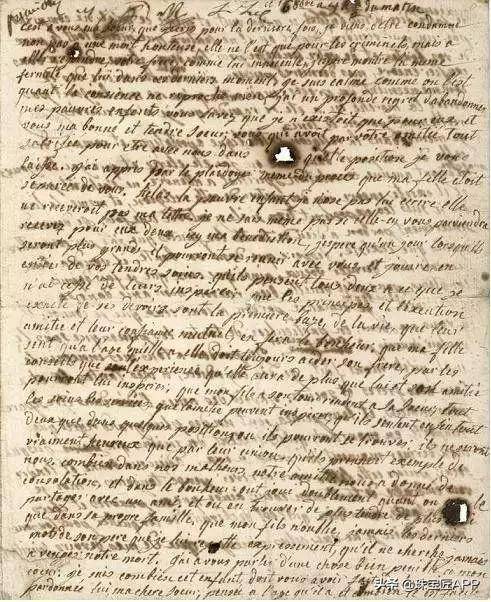 ce 16 8bre 4 h ½ du matin
C'est a vous, ma Soeur, que j'ecris pour la derniere fois, je viens d'etre condamnée
non pas a une mort honteuse, elle ne l'est que pour les criminels, mais a
aller rejoindre votre frere, comme lui innocente, j'espere montrer la meme
fermeté que lui dans ces derniers moments. je suis calme comme on l'est
quand la conscience ne reproche rien, j'ai un profond regret d'abandonner
mes pauvres enfants, vous savez que je n'existois que pour eux, et
vous ma bonne et tendre Soeur, vous qui avez par votre amitié tout
sacrifié pour etre avec nous, dans quelle position je vous
laisse, j'ai appris par le plaidoyer meme du proces que ma fille etoit
separée de vous. helas la pauvre enfant je n'ose pas lui ecrire elle
ne receveroit pas ma lettre, je ne sais meme pas si celle-ci vous parviendra
recevez pour eux deux ici ma benediction, j'espere qu'un jour lorsqu'ils
seront plus grands, ils pourront se reunir avec vous, et jouir en
entier de vos tendres soins, qu'ils pensent tous deux a ce que je
n'ai cessé de leurs inspirer, que les principes, et l'execution
exacte de ses devoirs sont la premiere base de la vie, que leur
amitié et leur confiance mutuel, en fera le bonheur, que ma fille
sent qu'a l'age qu'elle a elle doit toujours aider son frere par les
conseils que l'experience qu'elle aura de plus que lui et son amitié
pourront lui inspirer, que mon fils a son tour rende a sa Soeur, tout
les soins les services que l'amitié peuvent inspirer, qu'ils sentent enfin tout
deux que dans quelques positions ou ils pourront se trouver ils ne seront
vraiment heureux que par leur union, qu'ils prennent exemple de
nous, combien dans nos malheurs, notre amitié nous a donné de
consolation, et dans le bonheur on jouit doublement quand on peut le
partager avec un ami, et ou en trouver de plus tendre de plus
que dans sa propre famille, que mon fils n'oublie jamais les derniers
mots de son pere que je lui repete expressement, qu'il ne cherche jamais
a venger notre mort, j'ai a vous parler d'une chose bien penible a mon
coeur, je sais combien cet enfant, doit vous avoir fait de la peine
pardonnez lui ma chere Soeur, pensez a l'age qu'il a et combien il
头条 @珠宝匠APP